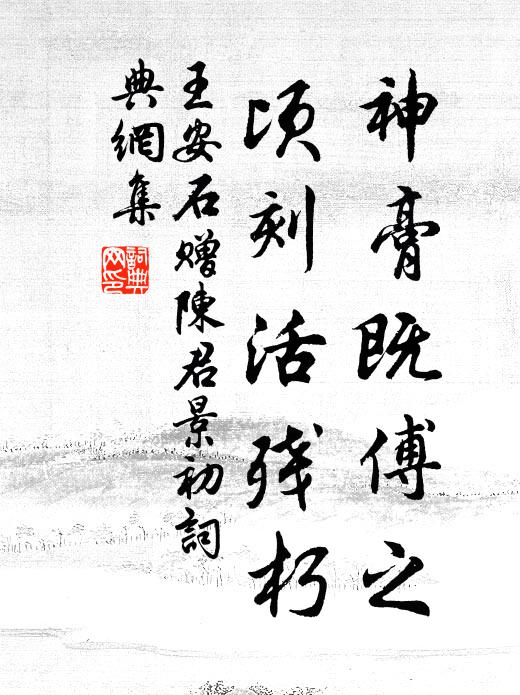 神膏既傅之
頃刻活残朽
王安石赠陳君景初詞
典網集
詞典
网印